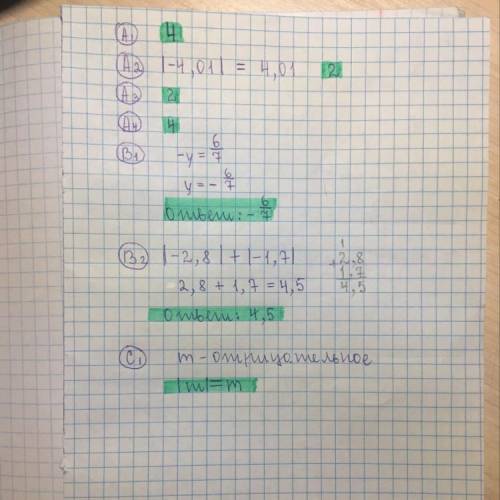 A1 4
A2 |-4,01| = 4,01 2
A3 2
A4 4
B1 -y = 6/7
y = - 6/7
ответ: - 6/7
B2 |-2,8| + |-1,7|
2,8 + 1,7 = 4,5
1
+ 2,8
1,7
4,5
ответ: 4,5
C1 m - отрицательное
|m| = m